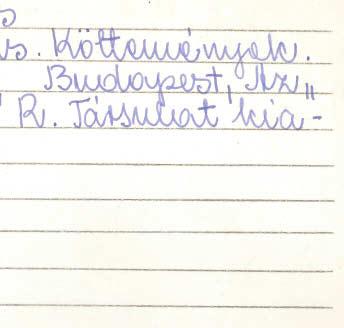 s
s. Költemények.
Budapest, Az „
R. Társulat kia-